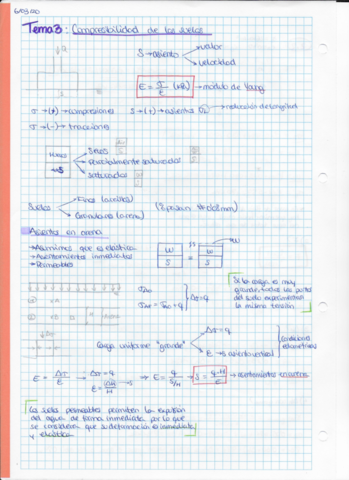 Tema 3: Compresibilidad de los suelos
S → asiento → valor
→ velocidad
E = σ/ε (kPa) → módulo de Young
σ → (+) → compresiones S → (+) → asientos → reducción de longitud
σ → (-) → tracciones
Huecos
S
→ Secos
→ Parcialmente saturados
→ saturados
Suelos → Finos (arcillas)
→ Granulares (arena)
Asientos en arena
→ Asumimos que es elástica
→ Asentamientos inmediatos
→ Permeables
W
S
=
W
S
W
Si la carga es muy
grande, todos los puntos
del suelo experimentan
la misma tensión.
Δσ = q
Carga uniforme "grande" → Δσ = q
→ ε → asiento vertical
condiciones
edométricas
E = Δσ/ε → Δσ = q
ε = ΔH/H → S
⇒ E = q/(S/H) ⇒ S = q·H/E → asentamientos en arena
Los suelos permeables permiten la expulsión
del agua de forma inmediata por lo que
se considera que su deformación es inmediata
y elástica.